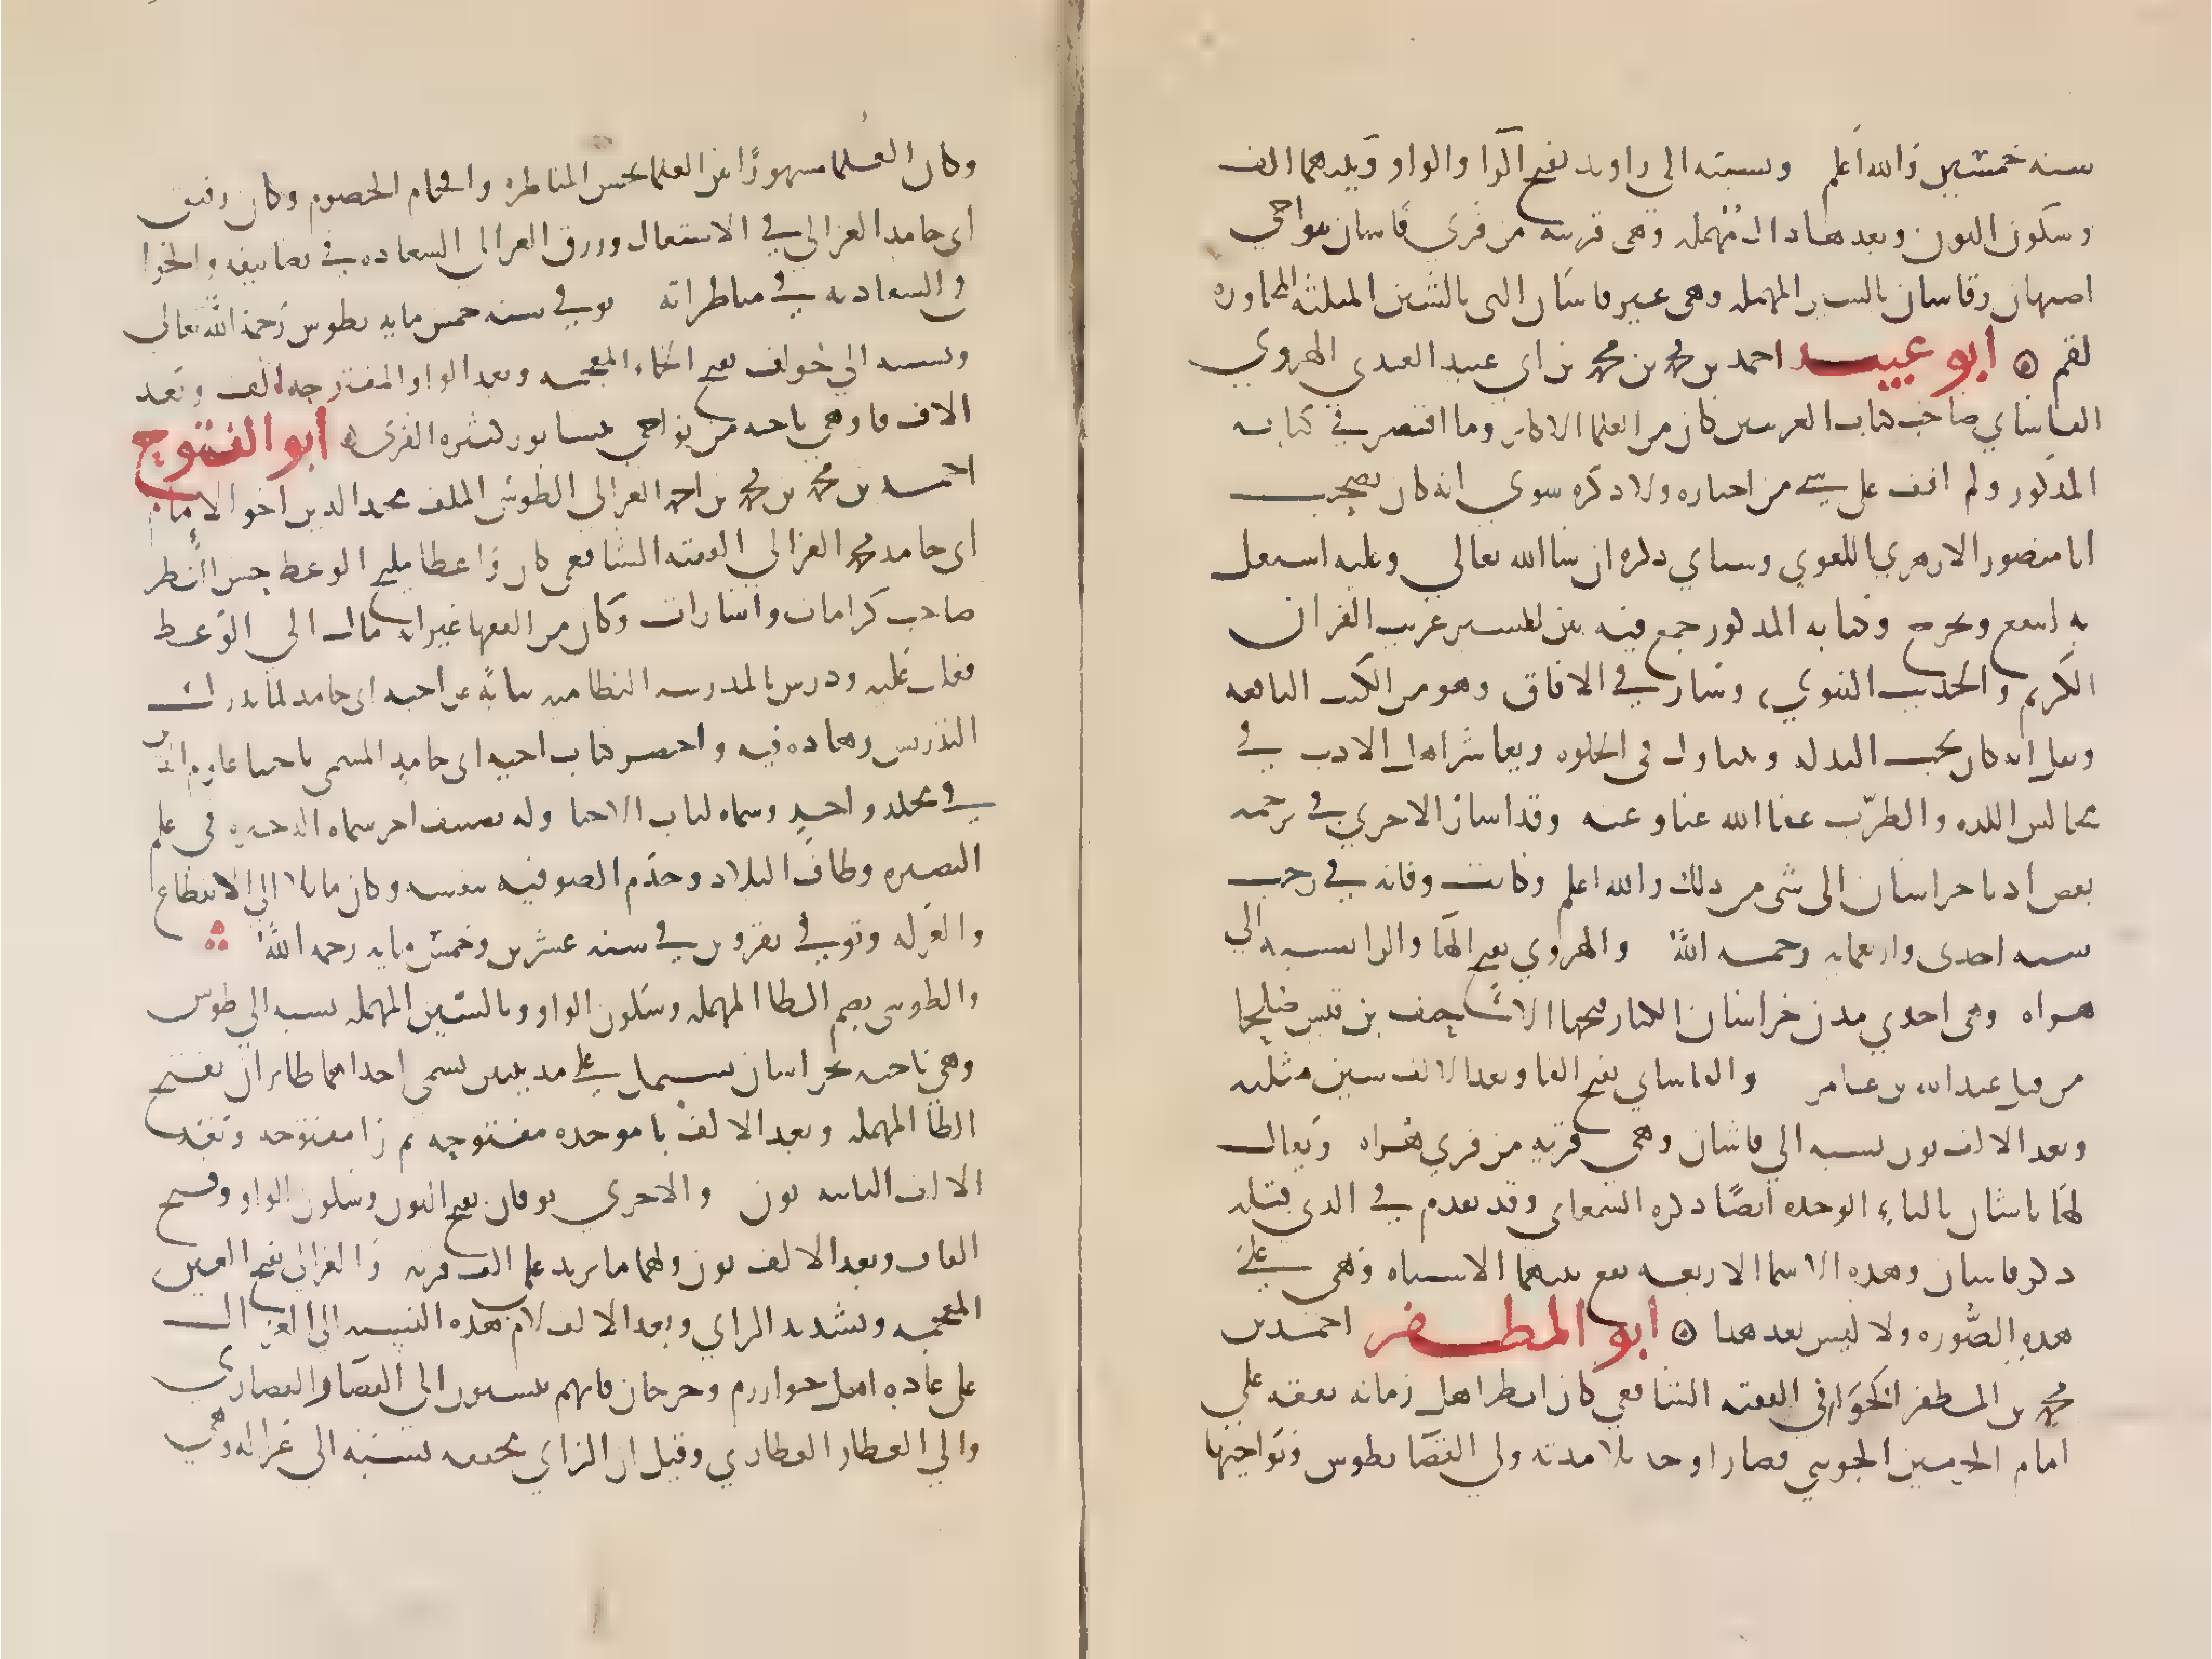 سنه خمسين والله اعلم ونسبته الى راوند بفتح الرا والواو وبينهما الف
وسكون النون وبعدها دال مهمله وهى قريه من قري قاسان بنواحي
اصبهان وقاسان بالسين المهمله وهى غير قاشان التى بالشين المثلثه المجاوره
لقم ۞ أبو عبيد احمد بن محمد بن محمد بن ابى عبيد العبدى الهروي
الفاشاي صاحب كتاب الغريبين كان من العلما الاكابر وما اقتصر في كتابه
المذكور ولم اقف على شي من اخباره ولا ذكره سوي انه كان يصحب
ابا منصور الازهري اللغوي وسياي ذكره ان شا الله تعالي وعليه اشتغل
به انتفع وتخرج وكتابه المذكور جمع فيه بين تفسير غريب القران
الكريم والحديث النبوي وسار في الافاق وهو من الكتب النافعه
وقيل انه كان يحب البذله ويتناول فى الخلوه ويعاشر اهل الادب في
مجالس اللذه والطرب عفا الله عنا وعنه وقد اشار الاخري في ترجمه
بعض ادبا خراسان الى شى من ذلك والله اعلم وكانت وفاته في رجب
سنه احدى واربعمايه رحمه الله والهروي بفتح الها والرا نسبه الي
هراه وهى احدي مدن خراسان الكبار فتحها الاحنف بن قيس
من قبل عبد الله بن عامر والفاشاي بفتح الفا وبعد الالف شين مثلثه
وبعد الالف نون نسبه الي فاشان وهى قريه من قري هراه ويقال
لها باشان بالباء الوحده ايضًا ذكره السمعاى وقد تقدم في الذى قبله
ذكر قاسان وهذه الاسما الاربعه يقع بينهما الاشتباه وهى علي
هذه الصوره ولا لبس بعد هذا ۞ أبو المظفر احمد بن
محمد بن المظفر الخوافى الفقيه الشافعي كان انظر اهل زمانه تفقه علي
امام الحرمين الجويني فصار اوحد تلامذته ولي القضا بطوس ونواحيها
وكان العلما مشهورًا بين العلما بحسن المناظره وافحام الخصوم وكان رفيق
ابى حامد الغزالي في الاشتغال ورزق الغزالى السعاده في تصانيفه والخوا
فى السعاده في مناظراته توفي سنه خمس مايه بطوس رحمه الله تعالى
ونسبه الي خواف بفتح الخاء المعجمه وبعد الواو المفتوحه الف وبعد
الالف فا وهى ناحيه من نواحى نيسابور كثيره القرى ۞ أبو الفتوح
احمد بن محمد بن محمد بن احمد الغزالى الطوسى الملقب مجد الدين اخو الامام
ابى حامد محمد الغزالي الفقيه الشافعى كان واعظا مليح الوعظ حسن النظر
صاحب كرامات واشارات وكان من الفقها غير انه مال الي الوعظ
فغلب عليه ودرس بالمدرسه النظاميه نيابة عن اخيه ابى حامد لما ترك
التدريس زهاده فيه واختصر كتاب اخيه ابى حامد المسمى باحيا علوم الدين
في مجلد واحد وسماه لباب الاحيا وله تصنيف اخر سماه الذخيره فى علم
البصيره وطاف البلاد وخدم الصوفيه بنفسه وكان مايلا الي الانقطاع
والعزله وتوفي بقزوين في سنه عشرين وخمس مايه رحمه الله
والطوسى بضم الطا المهمله وسكون الواو وبالسين المهمله نسبه الي طوس
وهي ناحيه بخراسان تشتمل علي مدينتين تسمى احداهما طابران بفتح
الطا المهمله وبعد الالف با موحده مفتوحه ثم را مفتوحه وبعد
الالف الثانيه نون والاخري نوقان بفتح النون وسكون الواو وفتح
القاف وبعد الالف نون ولهما ما يزيد على الف قريه والغزالى بفتح الغين
المعجمه وتشديد الزاي وبعد الالف لام هذه النسبه الى الغزال
على عاده اهل خوارزم وجرجان فانهم ينسبون الي القصار القصاري
والي العطار العطاري وقيل ان الزاي مخففه نسبه الي غزاله وهى